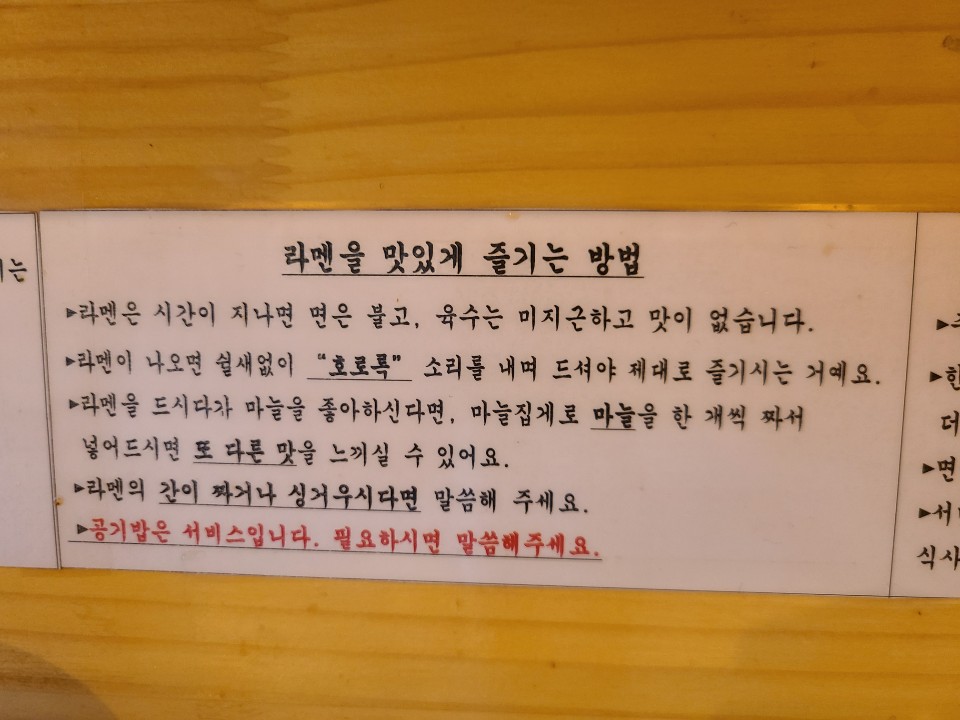 라멘을 맛있게 즐기는 방법
▶라멘은 시간이 지나면 면은 불고, 육수는 미지근하고 맛이 없습니다.
▶라멘이 나오면 쉴새없이 “호로록” 소리를 내며 드셔야 제대로 즐기시는 거예요.
▶라멘을 드시다가 마늘을 좋아하신다면, 마늘집게로 마늘을 한 개씩 짜서
넣어드시면 또 다른 맛을 느끼실 수 있어요.
▶라멘의 간이 짜거나 싱거우시다면 말씀해 주세요.
▶공기밥은 서비스입니다. 필요하시면 말씀해주세요.
는
▶한
더
▶면
▶서
식사